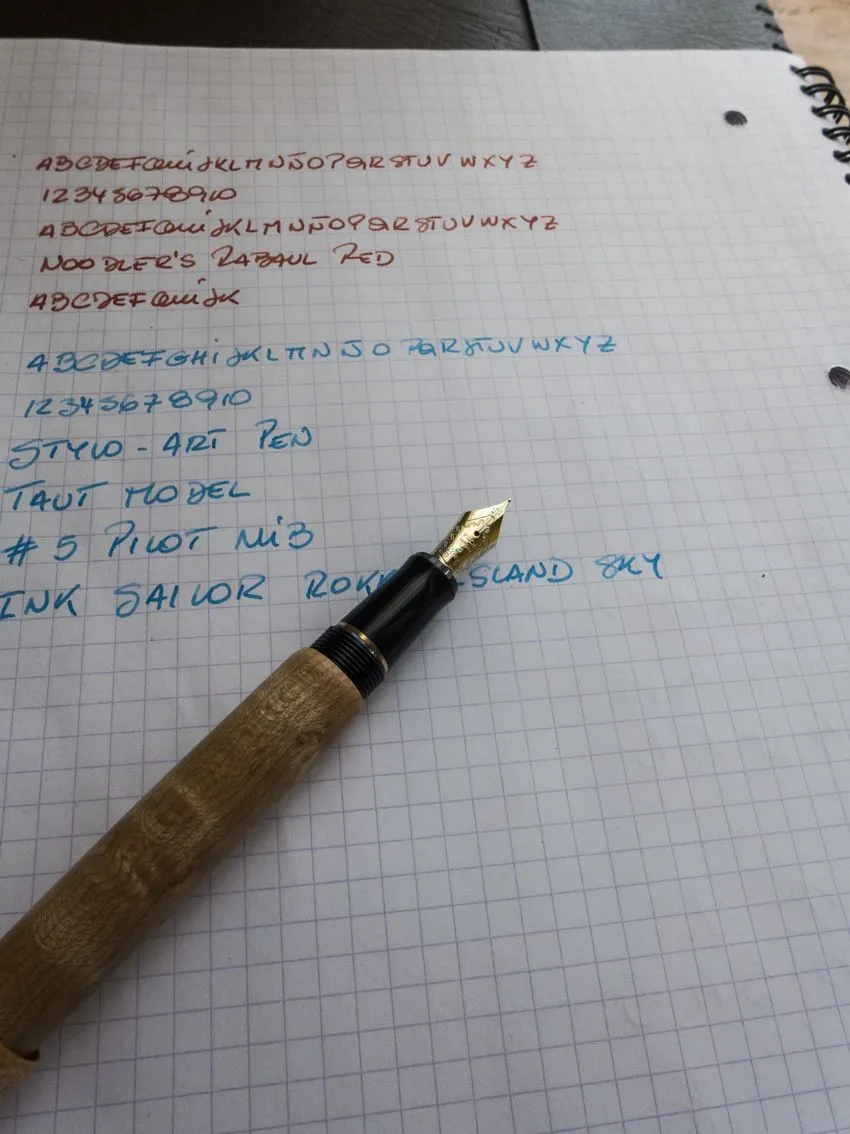 ABCDEFGHIJKLMNÑOPQRSTUVWXYZ
12345678910
ABCDEFGHIJKLMNÑOPQRSTUVWXYZ
NOODLER'S RABAUL RED
ABCDEFGHIJK
ABCDEFGHIJKLMNÑOPQRSTUVWXYZ
12345678910
STYLO-ART PEN
TAUT MODEL
# 5 PILOT NIB
INK SAILOR SKY